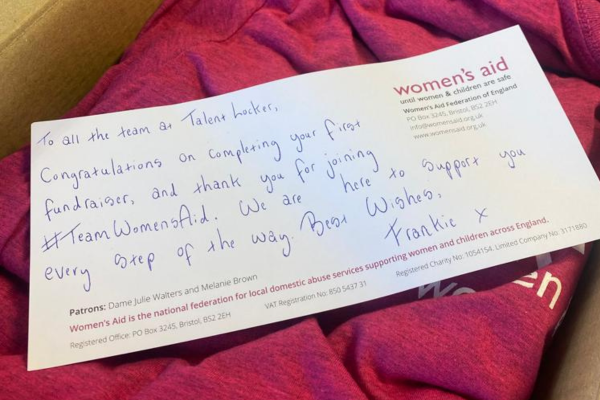 women's aid
until women & children are safe
Women's Aid Federation of England
PO Box 3245, Bristol, BS2 2EH
info@womensaid.org.uk
www.womensaid.org.uk
To all the team at Talent Locker,
Congratulations on completing your first
fundraiser, and thank you for joining
#TeamWomensAid. We are here to support you
every step of the way. Best Wishes,
Frankie x
Patrons: Dame Julie Walters and Melanie Brown
Women's Aid is the national federation for local domestic abuse services supporting women and children across England.
Registered Office: PO Box 3245, Bristol, BS2 2EH VAT Registration No: 850 5437 31 Registered Charity No: 1054154, Limited Company No: 3171880
women